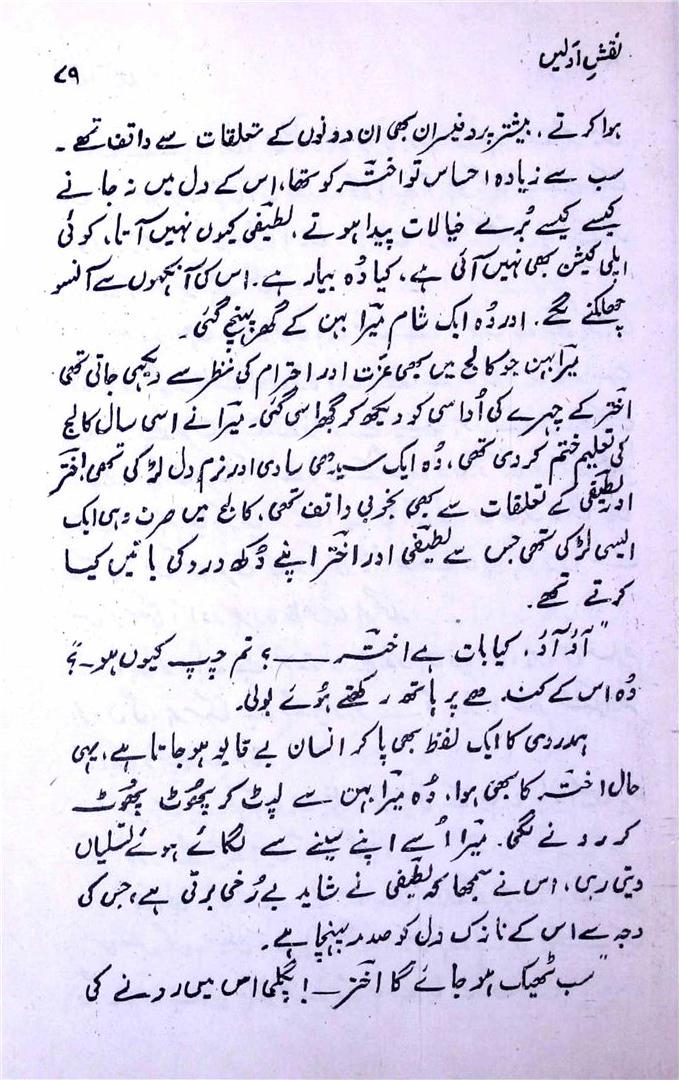 نقشِ اوّلیں
۷۹
ہوا کرتے ، بیشتر پروفیسران بھی ان دونوں کے تعلقات سے واقف تھے ۔
سب سے زیادہ احساس تو اختؔر کو تھا، اس کے دل میں نہ جانے
کیسے کیسے بُرے خیالات پیدا ہوتے ، لطیفؔی کیوں نہیں آتا، کوئی
ایلی کیشن بھی نہیں آئی ہے ، کیا وُہ بیمار ہے ۔ اس کی آنکھوں سے آنسو
چھلکنے لگے ۔ اور وُہ ایک شام میؔرا بہن کے گھر پہنچ گئی ۔
میؔرا بہن جو کالج میں بھی عزّت اور احترام کی نظر سے دیکھی جاتی تھی
اختؔر کے چہرے کی اُداسی کو دیکھ کر گھبرا سی گئی ۔ میؔرا نے اسی سال کالج
کی تعلیم ختم کر دی تھی ، وُہ ایک سیدھی سادی اور نرم دل لڑکی تھی! اختؔر
اور لطیفؔی کے تعلقات سے بھی بخوبی واقف تھی ، کالج میں صرف وہی ایک
ایسی لڑکی تھی جس سے لطیفؔی اور اختؔر اپنے دُکھ درد کی باتیں کیا
کرتے تھے ۔
"آؤ آؤ ، کیا بات ہے اختؔر ـــــ؟ تم چپ کیوں ہو ـ؟"
وُہ اس کے کندھے پر ہاتھ رکھتے ہوئے بولی ۔
ہمدردی کا ایک لفظ بھی پا کر انسان بے قابو ہو جاتا ہے ، یہی
حال اختؔر کا بھی ہوا ، وُہ میؔرا بہن سے لپٹ کر پھُوٹ پھُوٹ
کر رونے لگی ۔ میؔرا اُسے اپنے سینے سے لگائے ہوئے تسلیاں
دیتی رہی ، اس نے سمجھا کہ لطیفؔی نے شاید بے رُخی برتی ہے ، جس کی
وجہ سے اس کے نازک دل کو صدمہ پہنچا ہے ۔
"سب ٹھیک ہو جائے گا اختؔر ــــ! پگلی اس میں رونے کی